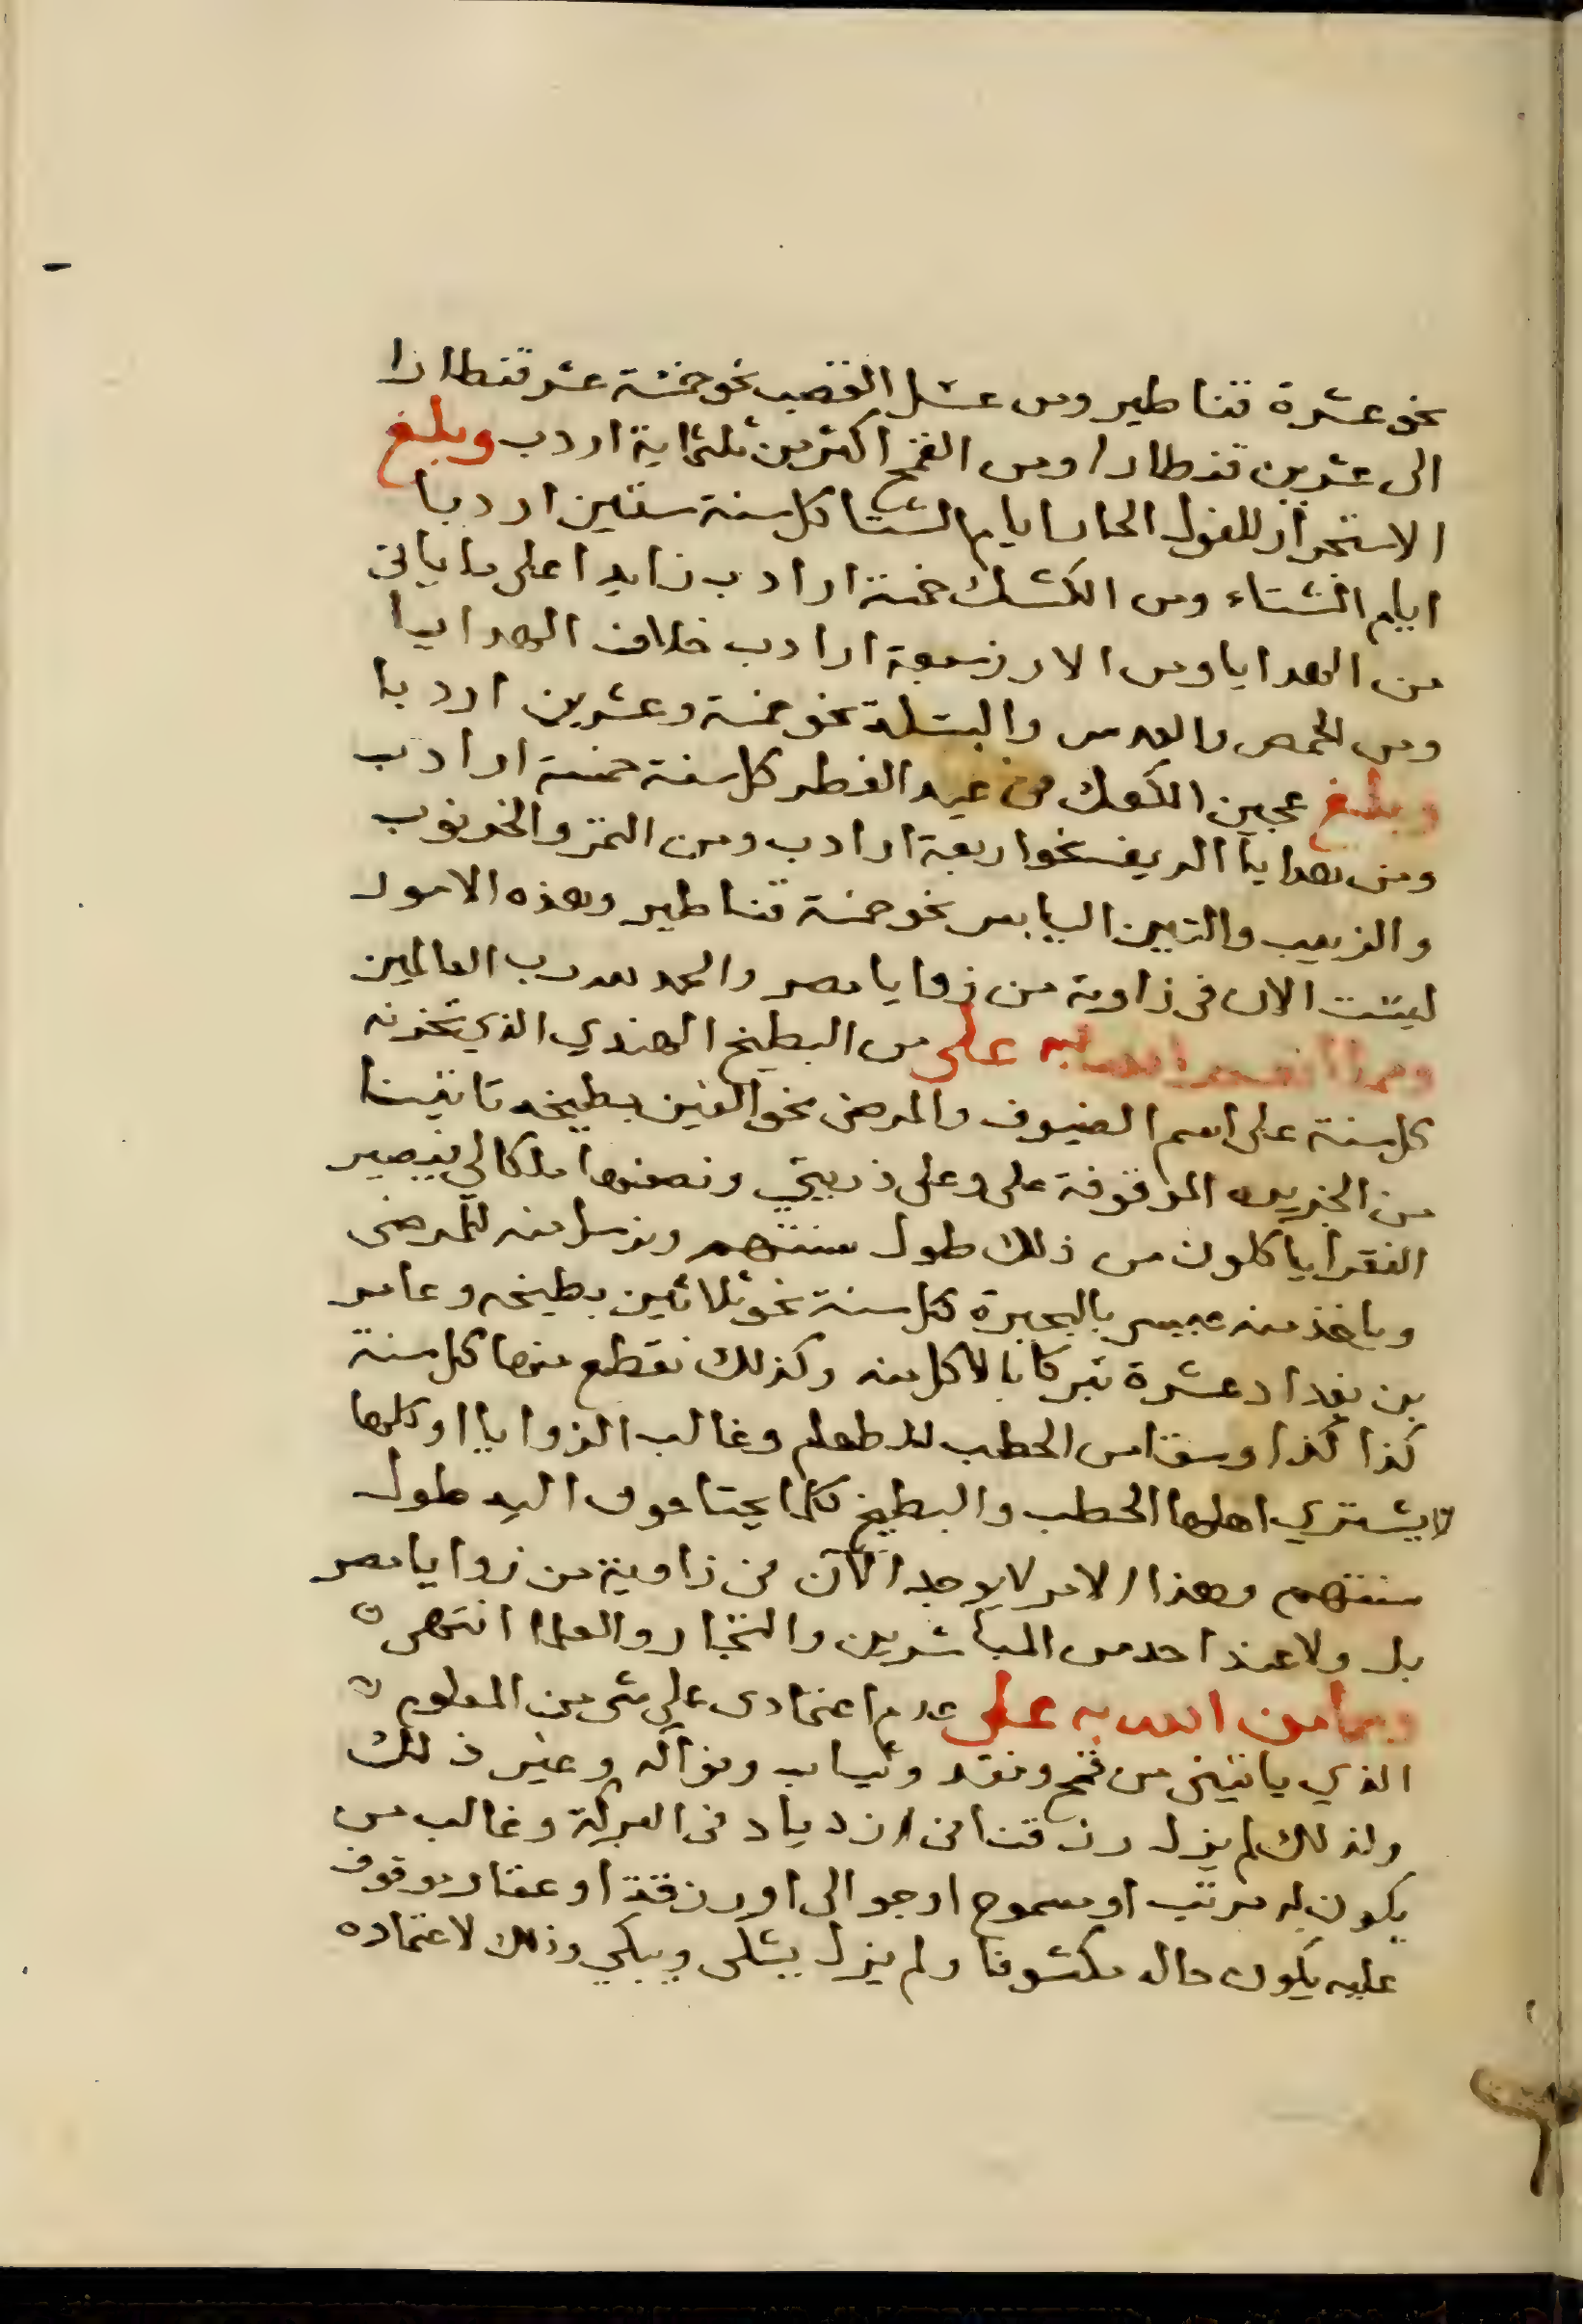 نحو عشرة قناطير ومن عسل القصب نحو خمسة عشر قنطارا
الى عشرين قنطارا ومن القمح اكثر من ثلثماية اردب وبلغ
الاستجرار للفول الحار ايام الشتا كل سنة ستين اردبا
ايام الشتاء ومن الكشك خمسة ارادب زايدا على ما ياتى
من الهدايا ومن الارز سبعة ارادب خلاف الهدايا
ومن الحمص والعدس والبسلة نحو خمسة وعشرين اردبا
وبلغ عجين الكعك فى عيد الفطر كل سنة خمسة ارادب
ومن هدايا الريف نحو اربعة ارادب ومن التمر والخرنوب
والزبيب والتين اليابس نحو خمسة قناطير وهذه الامور
ليست الان فى زاوية من زوايا مصر والحمد لله رب العالمين
ومما انعم الله به على من البطيخ الهندي الذي تخزنه
كل سنة على اسم الضيوف والمرضى نحو الفين بطيخه تاتينا
من الجزيرة الموقوفة على وعلى ذريتي ونصفها ملكا لي فيصير
الفقرا ياكلون من ذلك طول سنتهم ونرسل منه للمرضى
وياخذ منه عيسى بالبحيرة كل سنة نحو ثلاثين بطيخه وعامر
بن بغداد عشرة تبركا بالاكل منه وكذلك نقطع منها كل سنة
كذا كذا وسقا من الحطب للطعام وغالب الزوايا او كلها
لا يشتري اهلها الحطب والبطيخ كلما يحتاجون اليه طول
سنتهم وهذا الامر لا يوجد الآن فى زاوية من زوايا مصر
بل ولا عند احد من المباشرين والتجار والعلما انتهى ه
ومما من الله به على عدم اعتمادى على شى من المعلوم ه
الذي ياتينى من قمح ونقد وثياب وفواكه وغير ذلك
ولذلك لم يزل رزقنا فى ازدياد فى البركة وغالب من
يكون له مرتب او مسموح او جوالى او رزقة او عقار موقوف
عليه يكون حاله مكشوفا ولم يزل يشكى ويبكي وذلك لاعتماده